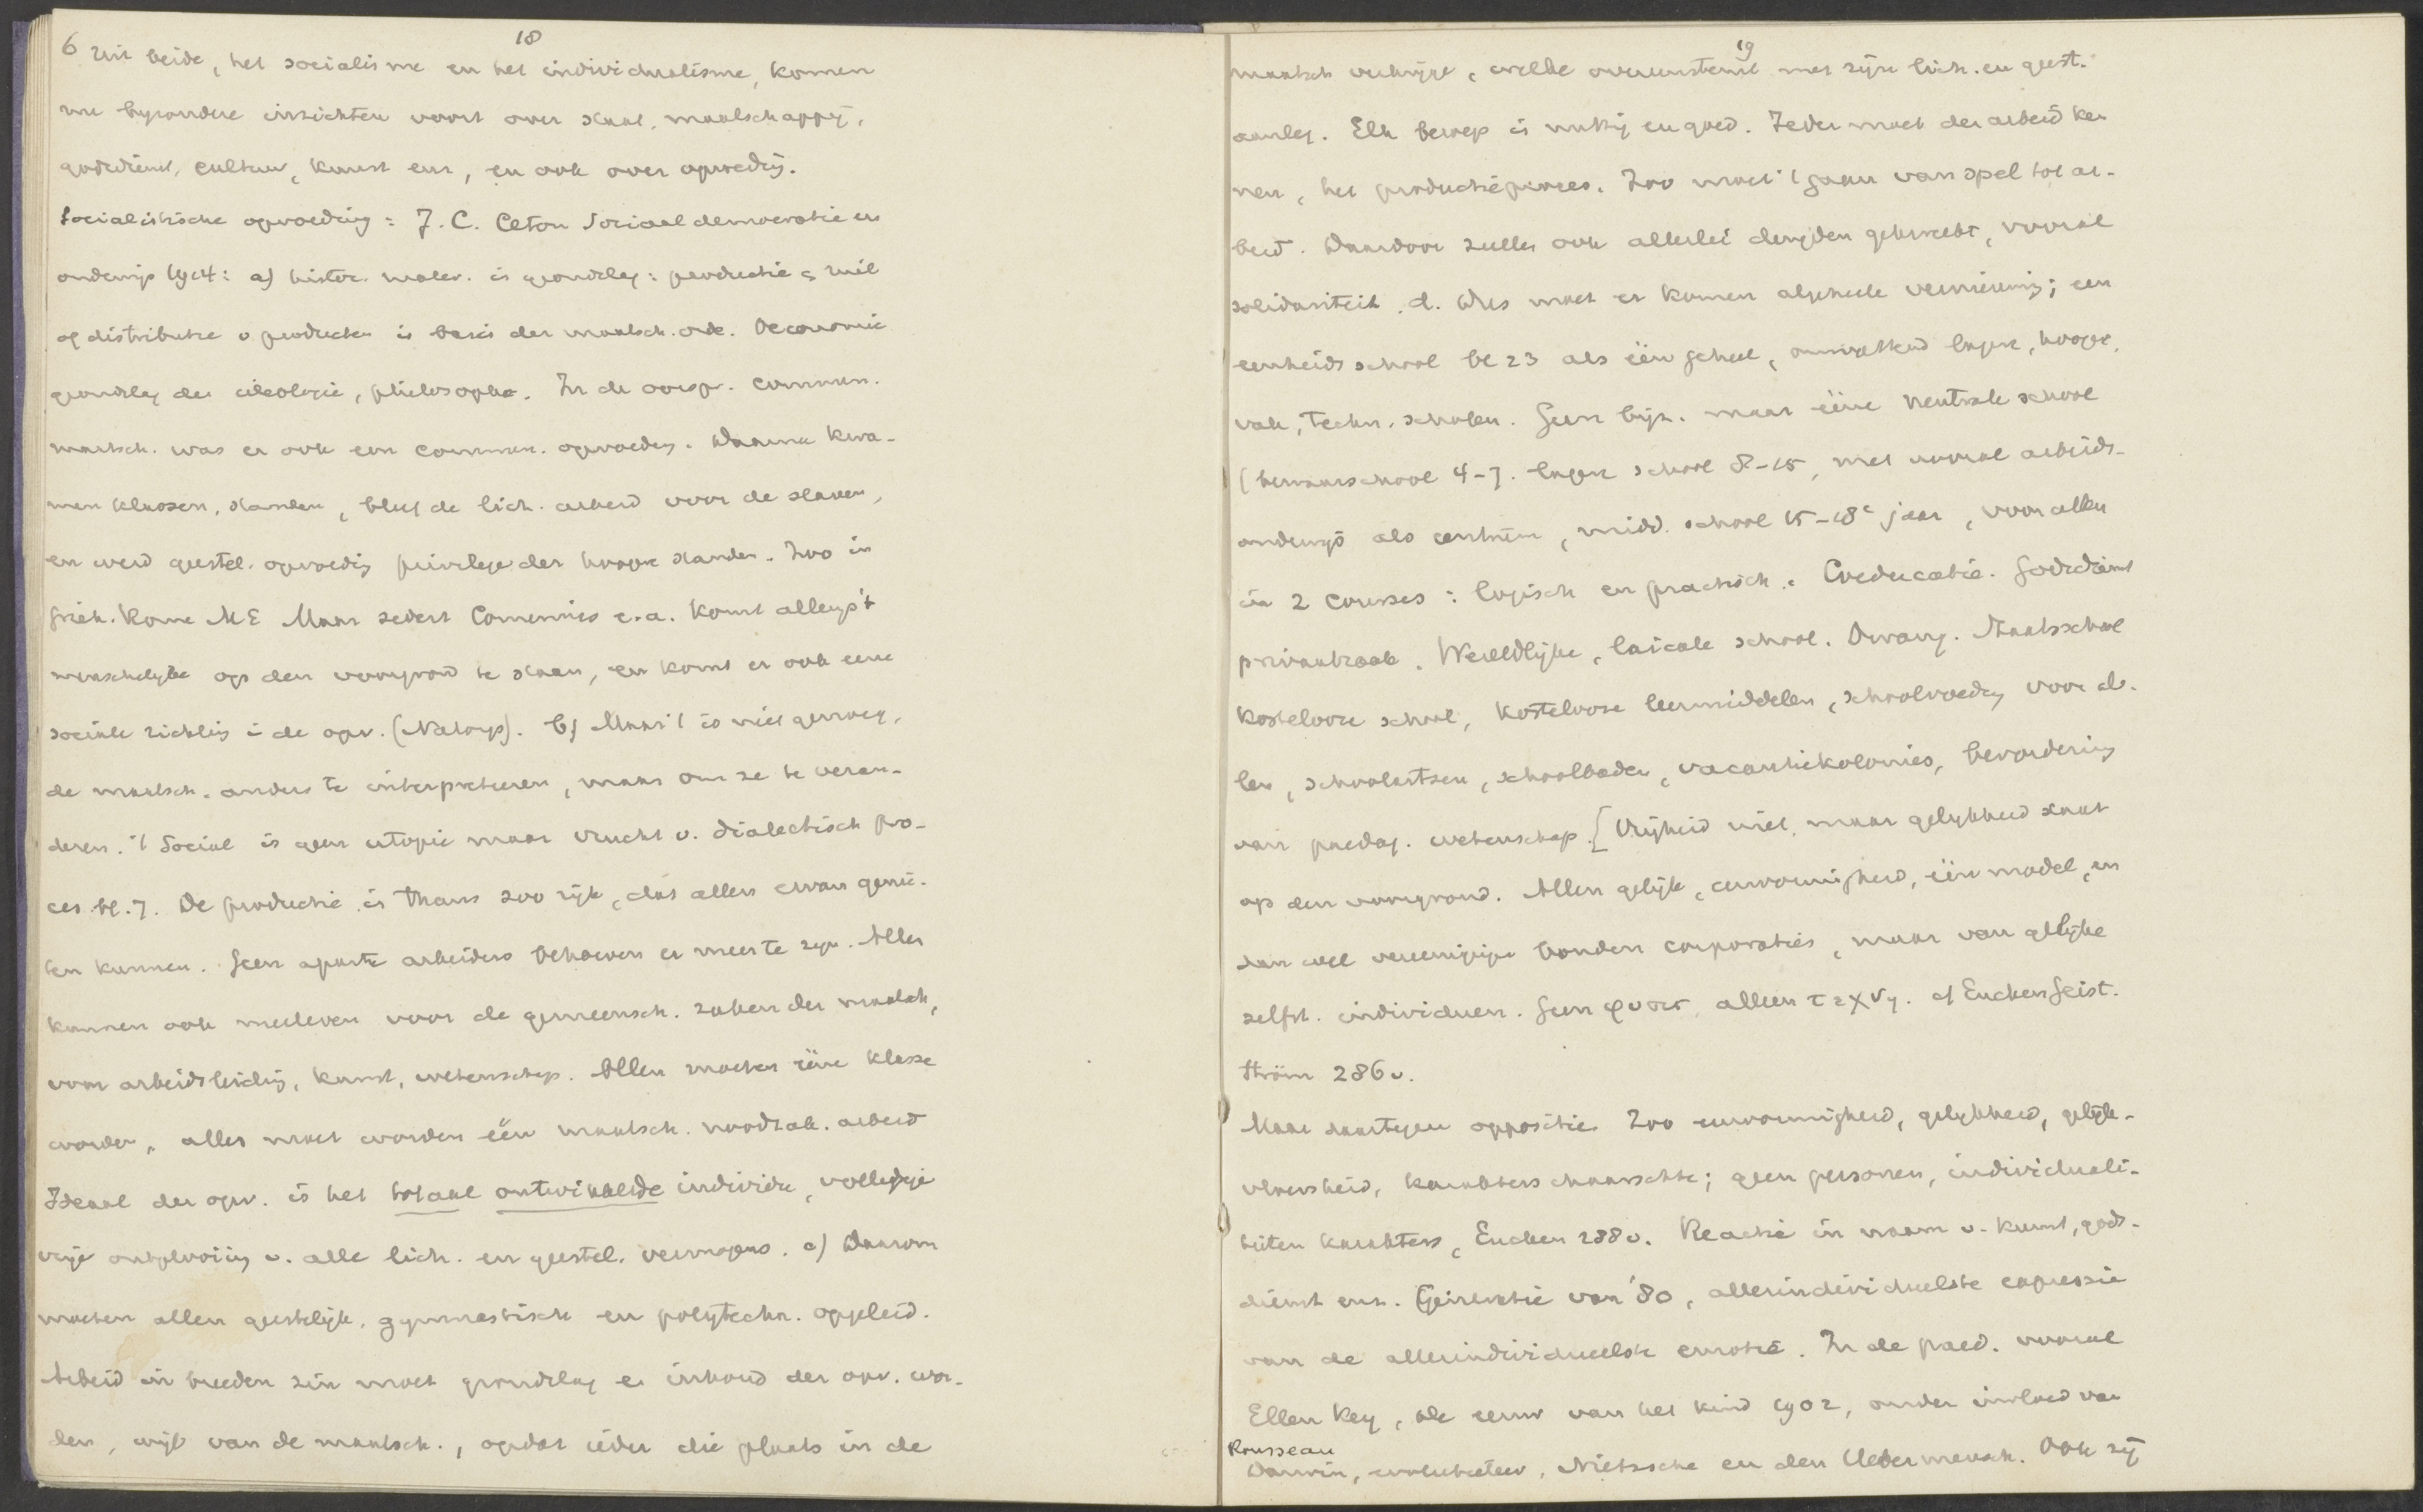 18
6 Uit beide, het socialisme en het individualisme, komen
nu byzondere inzichten voort over staat, maatschappy,
godsdienst, cultuur, kunst enz, en ook over opvoedg.
Socialistische opvoeding: J. C. Ceton Sociaaldemocratie en
onderwijs 1914: a) histor. mater. is grondslag: productie & ruil
of distributie v producten is basis der maatsch. orde. Oeconomie
grondslag der ideologie, philosophie. In de oorspr. commun.
maatsch. was er ook een commun. opvoedg. Daarna kwa-
men klassen, standen, bleef de lich. arbeid voor de slaven,
en werd geestel. opvoedig privilege der hoogre standen. Zoo in
Griek. Rome ME Maar sedert Comenius e.a. komt alleng 't
menschelyke op den voorgrond te staan, en komt er ook eene
sociale richting i de opv. (Natorp). b) Maar 't is niet genoeg,
de maatsch. anders te interpreteeren, maar om ze te veran-
deren. 't Social is geen utopie maar vrucht v. dialectisch pro-
ces bl. 7. De productie is thans zoo rijk, dat allen ervan genie-
ten kunnen. Geen aparte arbeiders behoeven er meer te zijn. Allen
kunnen ook meeleven voor de gemeensch. zaken der maatsch,
voor arbeidsleiding, kunst, wetenschap. Allen moeten ééne klasse
worden, alles moet worden één maatsch. noodzak. arbeid
Ideaal der opv. is het totaal ontwikkelde individu, volledige
vrije ontplooiig v. alle lich. en geestel. vermogens. c) Daarom
moeten allen geestelijk, gymnastisch en polytechn. opgeleid.
Arbeid in breeden zin moet grondslag en inhoud der opv. wor-
den, wijl van de maatsch., opdat ieder die plaats in de
19
maatsch verkrijge, welke overeenstemt met zijn lich. en geest.
aanleg. Elk beroep is nuttig en goed. Ieder moet den arbeid ken
nen, het productieproces. Zoo moet 't gaan van spel tot ar-
beid. Daardoor zullen ook allerlei deugden gekweekt, vooral
solidariteit. d. Dus moet er komen algeheele vernieuwing; een
eenheidsschool bl 23 als één geheel, omvattend lagere, hoogre,
vak, techn. scholen. Geen bijz. maar ééne neutrale school
(bewaarschool 4-7. lagere school 8-15, met vooral arbeids-
onderwijs als centrum, midd. school 15-18e jaar, voor allen
in 2 courses: logisch en practisch. Coeducatie. Godsdienst
privaatzaak. Wereldlijke, laïcale school. Dwang. Staatsschool
kostelooze school, kostelooze leermiddelen, schoolvoedg voor al-
len, schoolartsen, schoolbaden, vacantiekolonies, bevordering
van paedag. wetenschap. [Vrijheid niet, maar gelykheid staat
op den voorgrond. Allen gelijk, eenvormigheid, één model, en
dan wel vereenigige bonden corporaties, maar van gelijke
zelfst. individuen. Geen φυσις, alleen τεχνη. cf Eucken Geist.
Ström 286v.
Maar daartegen oppositie. Zoo eenvormigheid, gelykheid, gelijk-
vloersheid, karakterschaarschte; geen personen, individuali-
teiten karakters, Eucken 288v. Reactie in naam v. kunst, gods-
dienst enz. Generatie van '80, allerindividueelste expressie
van de allerindividueelste emotie. In de paed. vooral
Ellen Key, de eeuw van het kind 1902, onder invloed van
Rousseau
Darwin, evolutieleer, Nietzsche en den Uebermensch. Ook zij